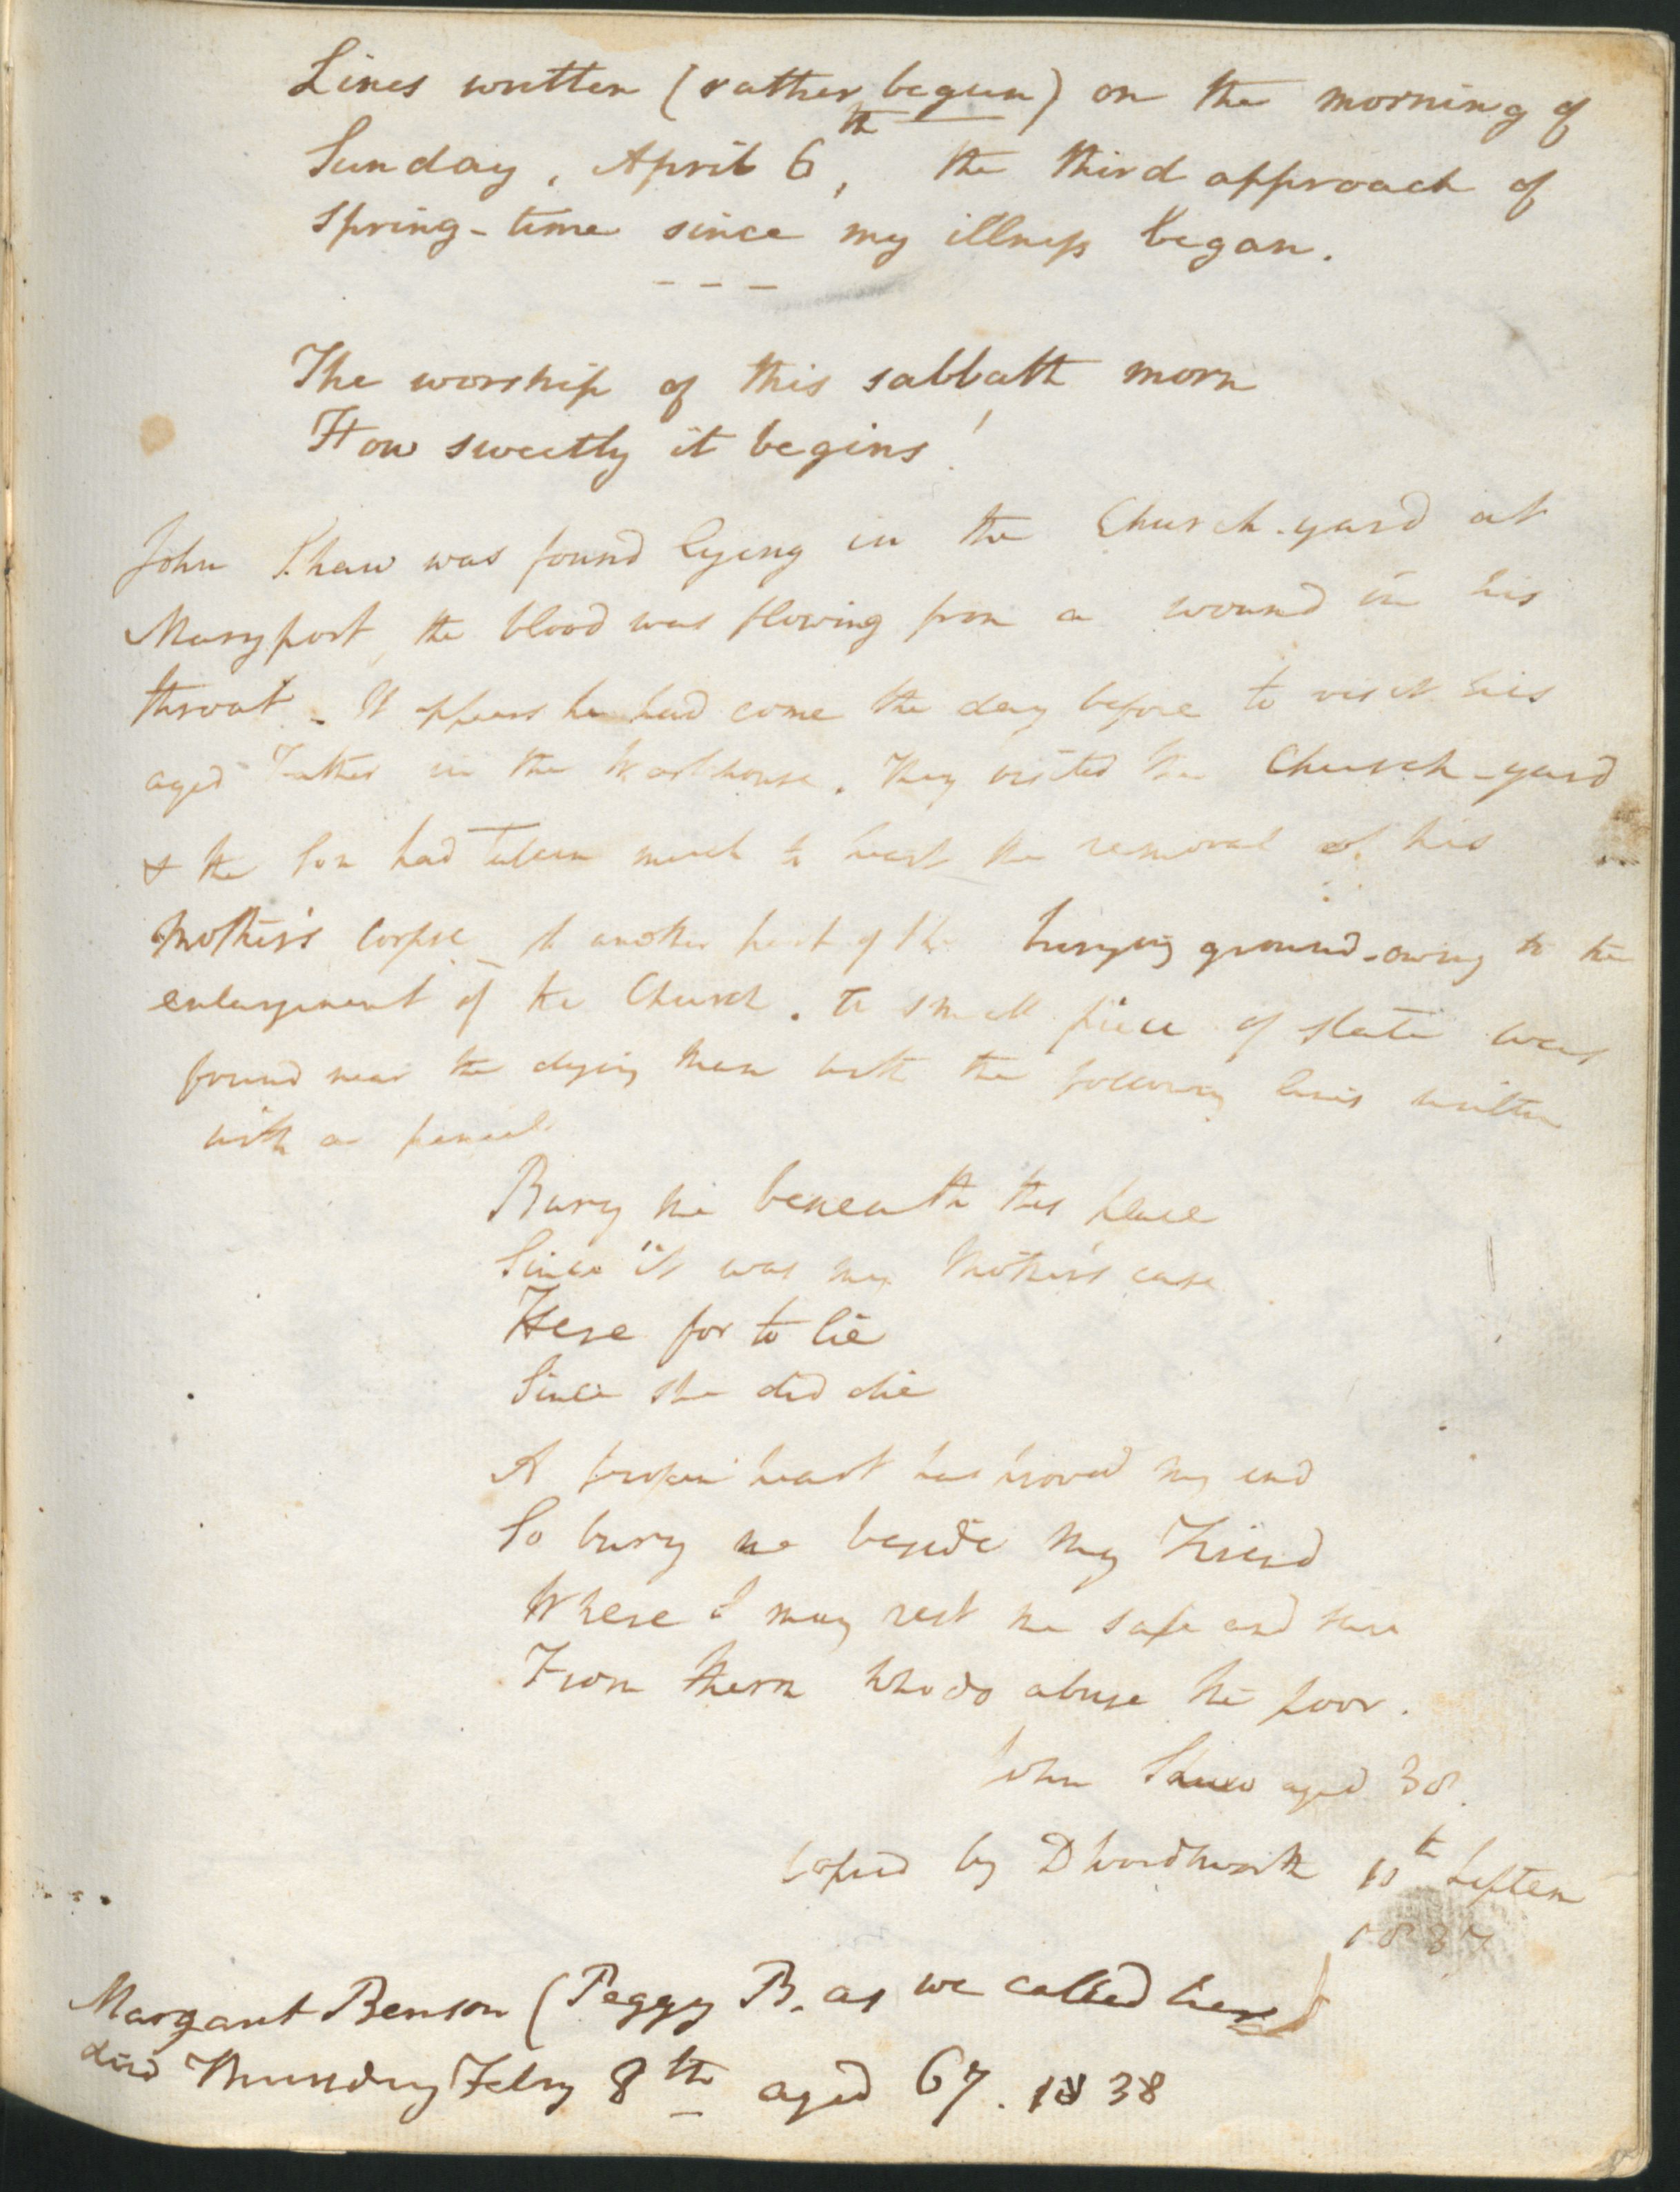 Lines written (rather begun) on the morning of
Sunday, April 6th, the third approach of
spring-time since my illness began.
- - -
The worship of this sabbath morn
How sweetly it begins!
John Shaw was found lying in the Church-yard at
Maryport, the blood was flowing from a wound in his
throat - It appears he had come the day before to visit his
aged Father in the Workhouse. They visited the Church-yard
& the Son had taken much to heart the removal of his
Mother's Corpse to another part of the burying ground - owing to the
enlargement of the Church. A small piece of slate was
found near the dying Man with the following lines written
with a pencil
Bury me beneath this place
Since it was my Mother's case
Here for to lie
Since she did die
A broken heart has proved my end
So bury me beside my Friend
Where I may rest me safe and sure
From them who do abuse the poor.
John Shaw aged 38.
Copied by D Wordsworth 10th Septem
1837
Margaret Benson (Peggy B. as we called her)
died Thursday Febry 8th aged 67. 1838